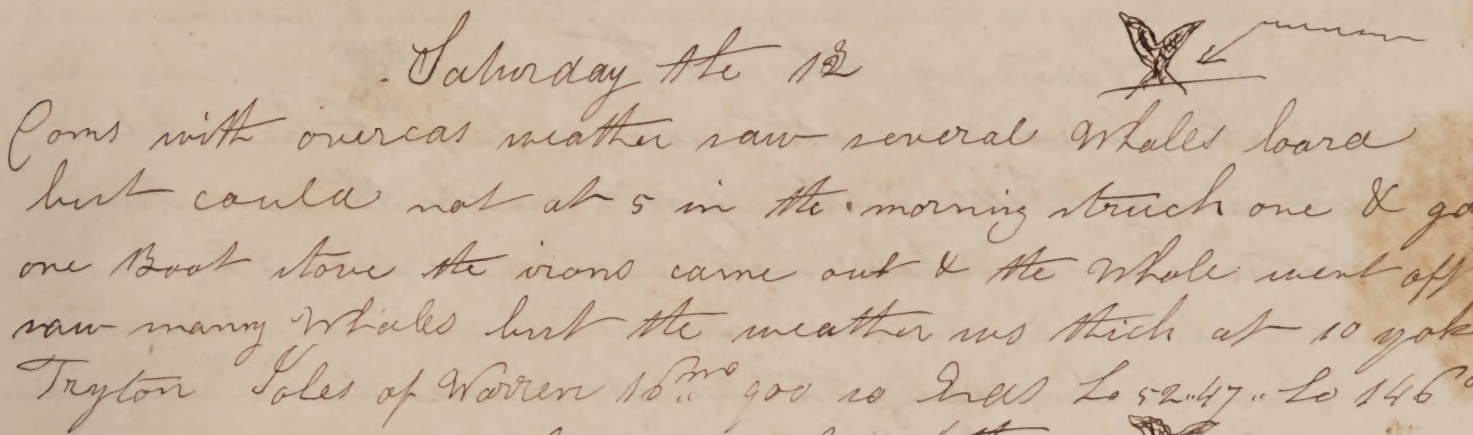 Saturday the 12
Coms with overcas weather saw several Whales loard
but could not at 5 in the morning struck one & go
one Boat stove the irons came out & the Whale went off
saw manny Whales but the weather ws thick at 10
Tryton of Warren 16 mo 900 so Ends La 52..47.. Lo 146